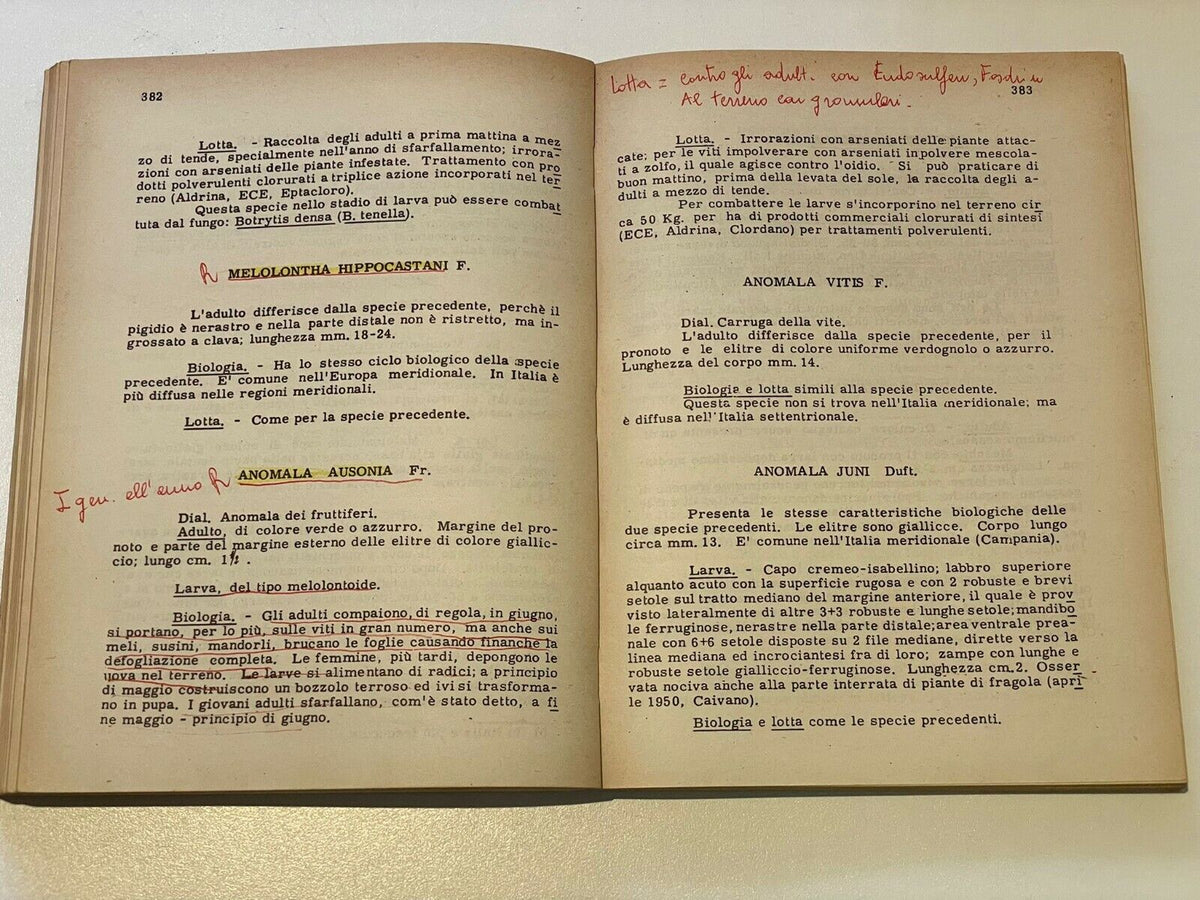 382
Lotta. - Raccolta degli adulti a prima mattina a mez
zo di tende, specialmente nell'anno di sfarfallamento; irrora-
zioni con arseniati delle piante infestate. Trattamento con pro
dotti polverulenti clorurati a triplice azione incorporati nel ter
reno (Aldrina, ECE, Eptacloro).
Questa specie nello stadio di larva può essere combat
tuta dal fungo: Botrytis densa (B. tenella).
R MELOLONTHA HIPPOCASTANI F.
L'adulto differisce dalla specie precedente, perchè il
pigidio è nerastro e nella parte distale non è ristretto, ma in-
grossato a clava; lunghezza mm. 18-24.
Biologia. - Ha lo stesso ciclo biologico della specie
precedente. E' comune nell'Europa meridionale. In Italia è
più diffusa nelle regioni meridionali.
Lotta. - Come per la specie precedente.
I gen. all'anno R ANOMALA AUSONIA Fr.
Dial. Anomala dei fruttiferi.
Adulto, di colore verde o azzurro. Margine del pro-
noto e parte del margine esterno delle elitre di colore giallic-
cio; lungo cm. 1
Larva, del tipo melolontoide.
Biologia. - Gli adulti compaiono, di regola, in giugno,
si portano, per lo più, sulle viti in gran numero, ma anche sui
meli, susini, mandorli, brucano le foglie causando finanche la
defogliazione completa. Le femmine, più tardi, depongono le
uova nel terreno. Le larve si alimentano di radici; a principio
di maggio costruiscono un bozzolo terroso ed ivi si trasforma-
no in pupa. I giovani adulti sfarfallano, com'è stato detto, a fi
ne maggio - principio di giugno.
Lotta = contro gli adulti con Endosulfan, Fosdrin
Al terreno con granulari.
383
Lotta. - Irrorazioni con arseniati delle piante attac-
cate; per le viti impolverare con arseniati in polvere mescola-
ti a zolfo, il quale agisce contro l'oidio. Si può praticare di
buon mattino, prima della levata del sole, la raccolta degli a-
dulti a mezzo di tende.
Per combattere le larve s'incorporino nel terreno cir
ca 50 Kg. per ha di prodotti commerciali clorurati di sintesi
(ECE, Aldrina, Clordano) per trattamenti polverulenti.
ANOMALA VITIS F.
Dial. Carruga della vite.
L'adulto differisce dalla specie precedente, per il
pronoto e le elitre di colore uniforme verdognolo o azzurro.
Lunghezza del corpo mm. 14.
Biologia e lotta simili alla specie precedente.
Questa specie non si trova nell'Italia meridionale; ma
è diffusa nell'Italia settentrionale.
ANOMALA JUNI Duft.
Presenta le stesse caratteristiche biologiche delle
due specie precedenti. Le elitre sono giallicce. Corpo lungo
circa mm. 13. E' comune nell'Italia meridionale (Campania).
Larva. - Capo cremeo-isabellino; labbro superiore
alquanto acuto con la superficie rugosa e con 2 robuste e brevi
setole sul tratto mediano del margine anteriore, il quale è prov
visto lateralmente di altre 3+3 robuste e lunghe setole; mandibo
le ferruginose, nerastre nella parte distale; area ventrale prea-
nale con 6+6 setole disposte su 2 file mediane, dirette verso la
linea mediana ed incrociantesi fra di loro; zampe con lunghe e
robuste setole gialliccio-ferruginose. Lunghezza cm. 2. Osser
vata nociva anche alla parte interrata di piante di fragola (apri
le 1950, Caivano).
Biologia e lotta come le specie precedenti.